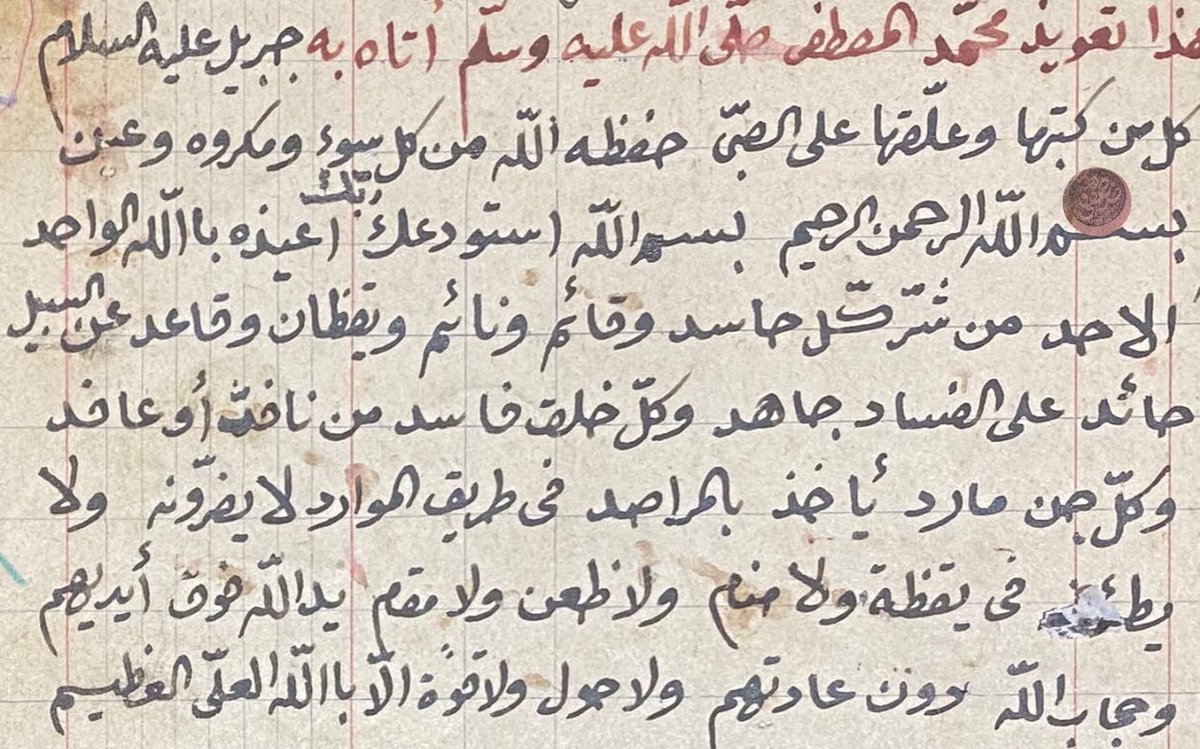 هذا تعويذ محمّد المصطفى صلّى اللّه عليه وسلّم أتاه به جبريل عليه السلام
كل من كتبها وعلّقها على الصبّى حفظه اللّه من كل سوء ومكروه وعين
بسم اللّه الرحمن الرحيم بسم اللّه استودعك ربّك اعيذه بااللّه الواحد
الاحد من شرّ كّل حاسد وقائم ونائم ويقظان وقاعد عن السبيل
حائد على الفساد جاهد وكلّ خلق فاسد من نافث أو عاقد
وكلّ جن مارد يأخذ بالمراصد فى طريق الموارد لا يضرّونه ولا
فى يقظة ولا منام ولا ظعن ولا مقام يد اللّه فوق أيديهم
وحجاب اللّه دون عادتهم ولا حول ولا قوة الّا بااللّه العلّى العظيم